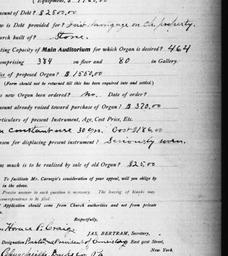 ount of Debt? $2500.00
is Debt provided for? First mortgage on Ch. property.
urch built of? Stone.
ting Capacity of Main Auditorium for which Organ is desired? 464
omprising 384 on floor and 80 in Gallery.
ice of proposed Organ? $1550.00
(Form should not be returned till this has been inquired into and settled.)
new Organ been ordered? No. Date of order?
mount already raised toward purchase of Organ? $370.00
articulars of present Instrument, Age, Cost Price, Etc.
constant use 30 yrs. Cost $186.00
eason for displacing present instrument? Seriously worn.
ow much is to be realized by sale of old Organ? $25.00
To facilitate Mr. Carnegie's consideration of your appeal, will you oblige by
in the above.
Precise answer to each question is necessary. The leaving of blanks may
correspondence to be
Application should come from Church authorities and not from private
Respectfully,
JAS. BERTRAM, Secretary,
Designation East 91st Street,
New York.